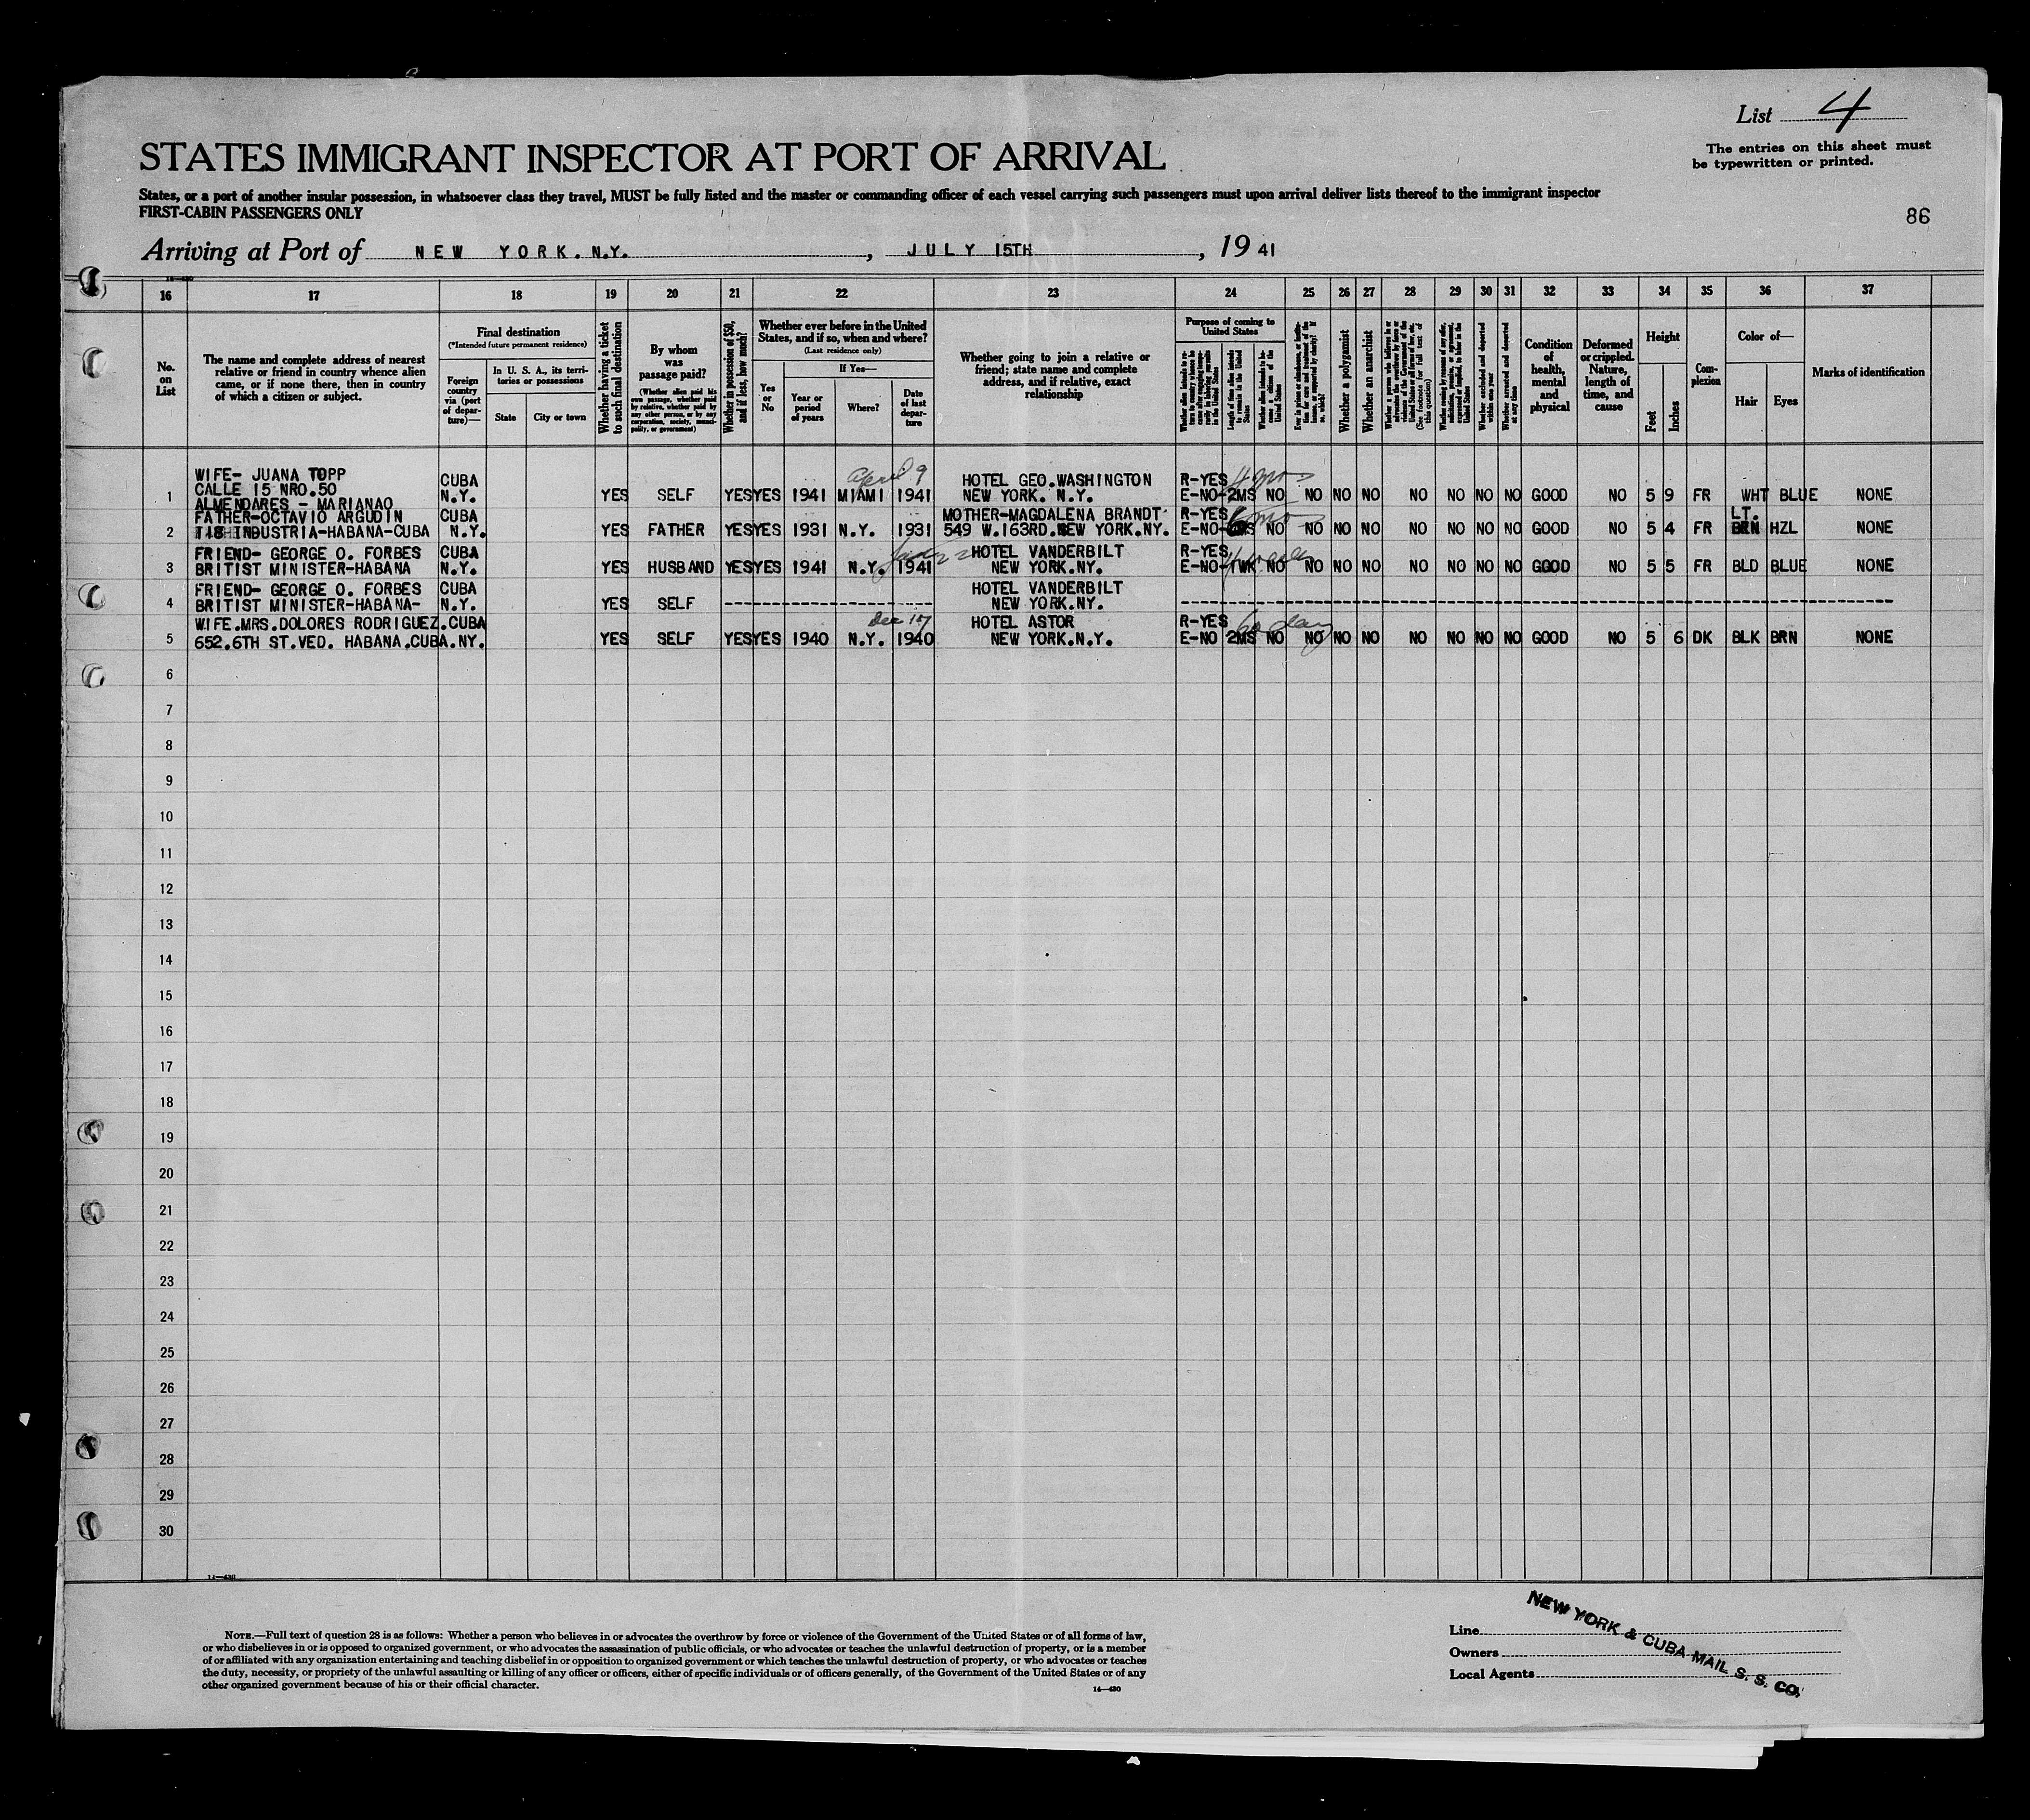 List 4
The entries on this sheet must
be typewritten or printed.
STATES IMMIGRANT INSPECTOR AT PORT OF ARRIVAL
States, or a port of another insular possession, in whatsoever class they travel, MUST be fully listed and the master or commanding officer of each vessel carrying such passengers must upon arrival deliver lists thereof to the immigrant inspector
FIRST-CABIN PASSENGERS ONLY
86
Arriving at Port of NEW YORK. N.Y. , JULY 15TH , 19 41
16 17 18 19 20 21 22 23 24 25 26 27 28 29 30 31 32 33 34 35 36 37
No.
on
List
The name and complete address of nearest
relative or friend in country whence alien
came, or if none there, then in country
of which a citizen or subject.
Final destination
(*Intended future permanent residence)
Foreign
country
via (port
of depar-
ture)—
In U. S. A., its terri-
tories or possessions
State
City or town
Whether having a ticket
to such final destination
By whom
was
passage paid?
(Whether alien paid his
own passage, whether paid
by relative, whether paid by
any other person, or by any
corporation, society, munici-
pality, or government)
Whether in possession of $50,
and if less, how much?
Whether ever before in the United
States, and if so, when and where?
(Last residence only)
Yes
or
No
If Yes—
Year or
period
of years
Where?
Date
of last
depar-
ture
Whether going to join a relative or
friend; state name and complete
address, and if relative, exact
relationship
Purpose of coming to
United States
Length of time alien intends
to remain in the United
States
Whether alien intends to be-
come a citizen of the
United States
Whether a polygamist
Whether an anarchist
(See footnote for full text of
this question)
Whether excluded and deported
within one year
Whether arrested and deported
at any time
Condition
of
health,
mental
and
physical
Deformed
or crippled.
Nature,
length of
time, and
cause
Height
Feet
Inches
Com-
plexion
Color of—
Hair
Eyes
Marks of identification
WIFE- JUANA TOPP
CALLE 15 NRO.50 CUBA April 9 HOTEL GEO.WASHINGTON R-YES 4 mos
1 ALMENDARES - MARIANAO N.Y. YES SELF YES YES 1941 MIAMI 1941 NEW YORK. N.Y. E-NO-2MS NO NO NO NO NO NO NO NO GOOD NO 5 9 FR WHT BLUE NONE
FATHER-OCTAVIO ARGUDIN CUBA MOTHER-MAGDALENA BRANDT R-YES 6 mo LT.
2 118 INDUSTRIA-HABANA-CUBA N.Y. YES FATHER YES YES 1931 N.Y. 1931 549 W.163RD.NEW YORK.NY. E-NO NO NO NO NO NO NO NO NO GOOD NO 5 4 FR BRN HZL NONE
FRIEND- GEORGE O. FORBES CUBA HOTEL VANDERBILT R-YES
3 BRITIST MINISTER-HABANA N.Y. YES HUSBAND YES YES 1941 N.Y. 1941 NEW YORK.NY. E-NO-1WK NO NO NO NO NO NO NO NO GOOD NO 5 5 FR BLD BLUE NONE
FRIEND- GEORGE O. FORBES CUBA HOTEL VANDERBILT
4 BRITIST MINISTER-HABANA- N.Y. YES SELF NEW YORK.NY.
WIFE.MRS.DOLORES RODRIGUEZ.CUBA Dec 17 HOTEL ASTOR R-YES 60 days
5 652.6TH ST.VED. HABANA.CUBA.NY. YES SELF YES YES 1940 N.Y. 1940 NEW YORK.N.Y. E-NO 2MS NO NO NO NO NO NO NO NO GOOD NO 5 6 DK BLK BRN NONE
6
7
8
9
10
11
12
13
14
15
16
17
18
19
20
21
22
23
24
25
26
27
28
29
30
NOTE.—Full text of question 28 is as follows: Whether a person who believes in or advocates the overthrow by force or violence of the Government of the United States or of all forms of law,
or who disbelieves in or is opposed to organized government, or who advocates the assassination of public officials, or who advocates or teaches the unlawful destruction of property, or is a member
of or affiliated with any organization entertaining and teaching disbelief in or opposition to organized government or which teaches the unlawful destruction of property, or who advocates or teaches
the duty, necessity, or propriety of the unlawful assaulting or killing of any officer or officers, either of specific individuals or of officers generally, of the Government of the United States or of any
other organized government because of his or their official character.
14—430
Line
Owners
Local Agents
NEW YORK & CUBA MAIL S. S. CO.